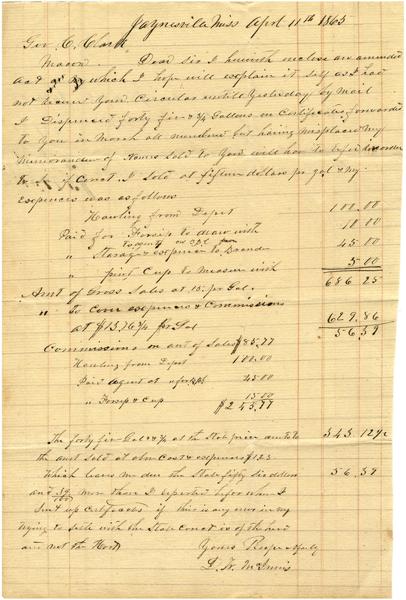 Jaynesville Miss April 11th 1865
Gov C. Clark
Macon. Dear Sir I herewith inclose an amended
which I hope will explain it self as I had
not received Your Circular untill Yesterday by Mail
I Dispensed forty five & 3/4 Gallons on Certificates forwarded
to You in March all numbered but having misplaced My
Memorandum of
I Sold at fifteen dollars pr gal & My
expences was as follows
Hauling from Depot 100.00
Paid for to draw with 10.00
" Storage & expences to Brandon 45.00
" pint Cup to measure with 5.00
Amt of Gross Sales at 15. pr Gal. 686 25
" To expences & Commissions
at $13.76 1/4 pr Gal 629.86
56.39
Commissions on amt of Sales $85.77
Hauling from Depot 100.00
Paid agent at 45.00
" & Cup 15.00
$245.77
The forty five Gal & 3/4 at the State price amts to 343.12 1/2
the amt Sold at Cost & expences
Which leaves me due the State fifty six dollars 56.39
and 39/100 more than I reported before when I
Sent up Certificates if there is any error in my
trying to Settle with the State Correct is of the head
and not the Heart
Yours Respectfully
McInnis